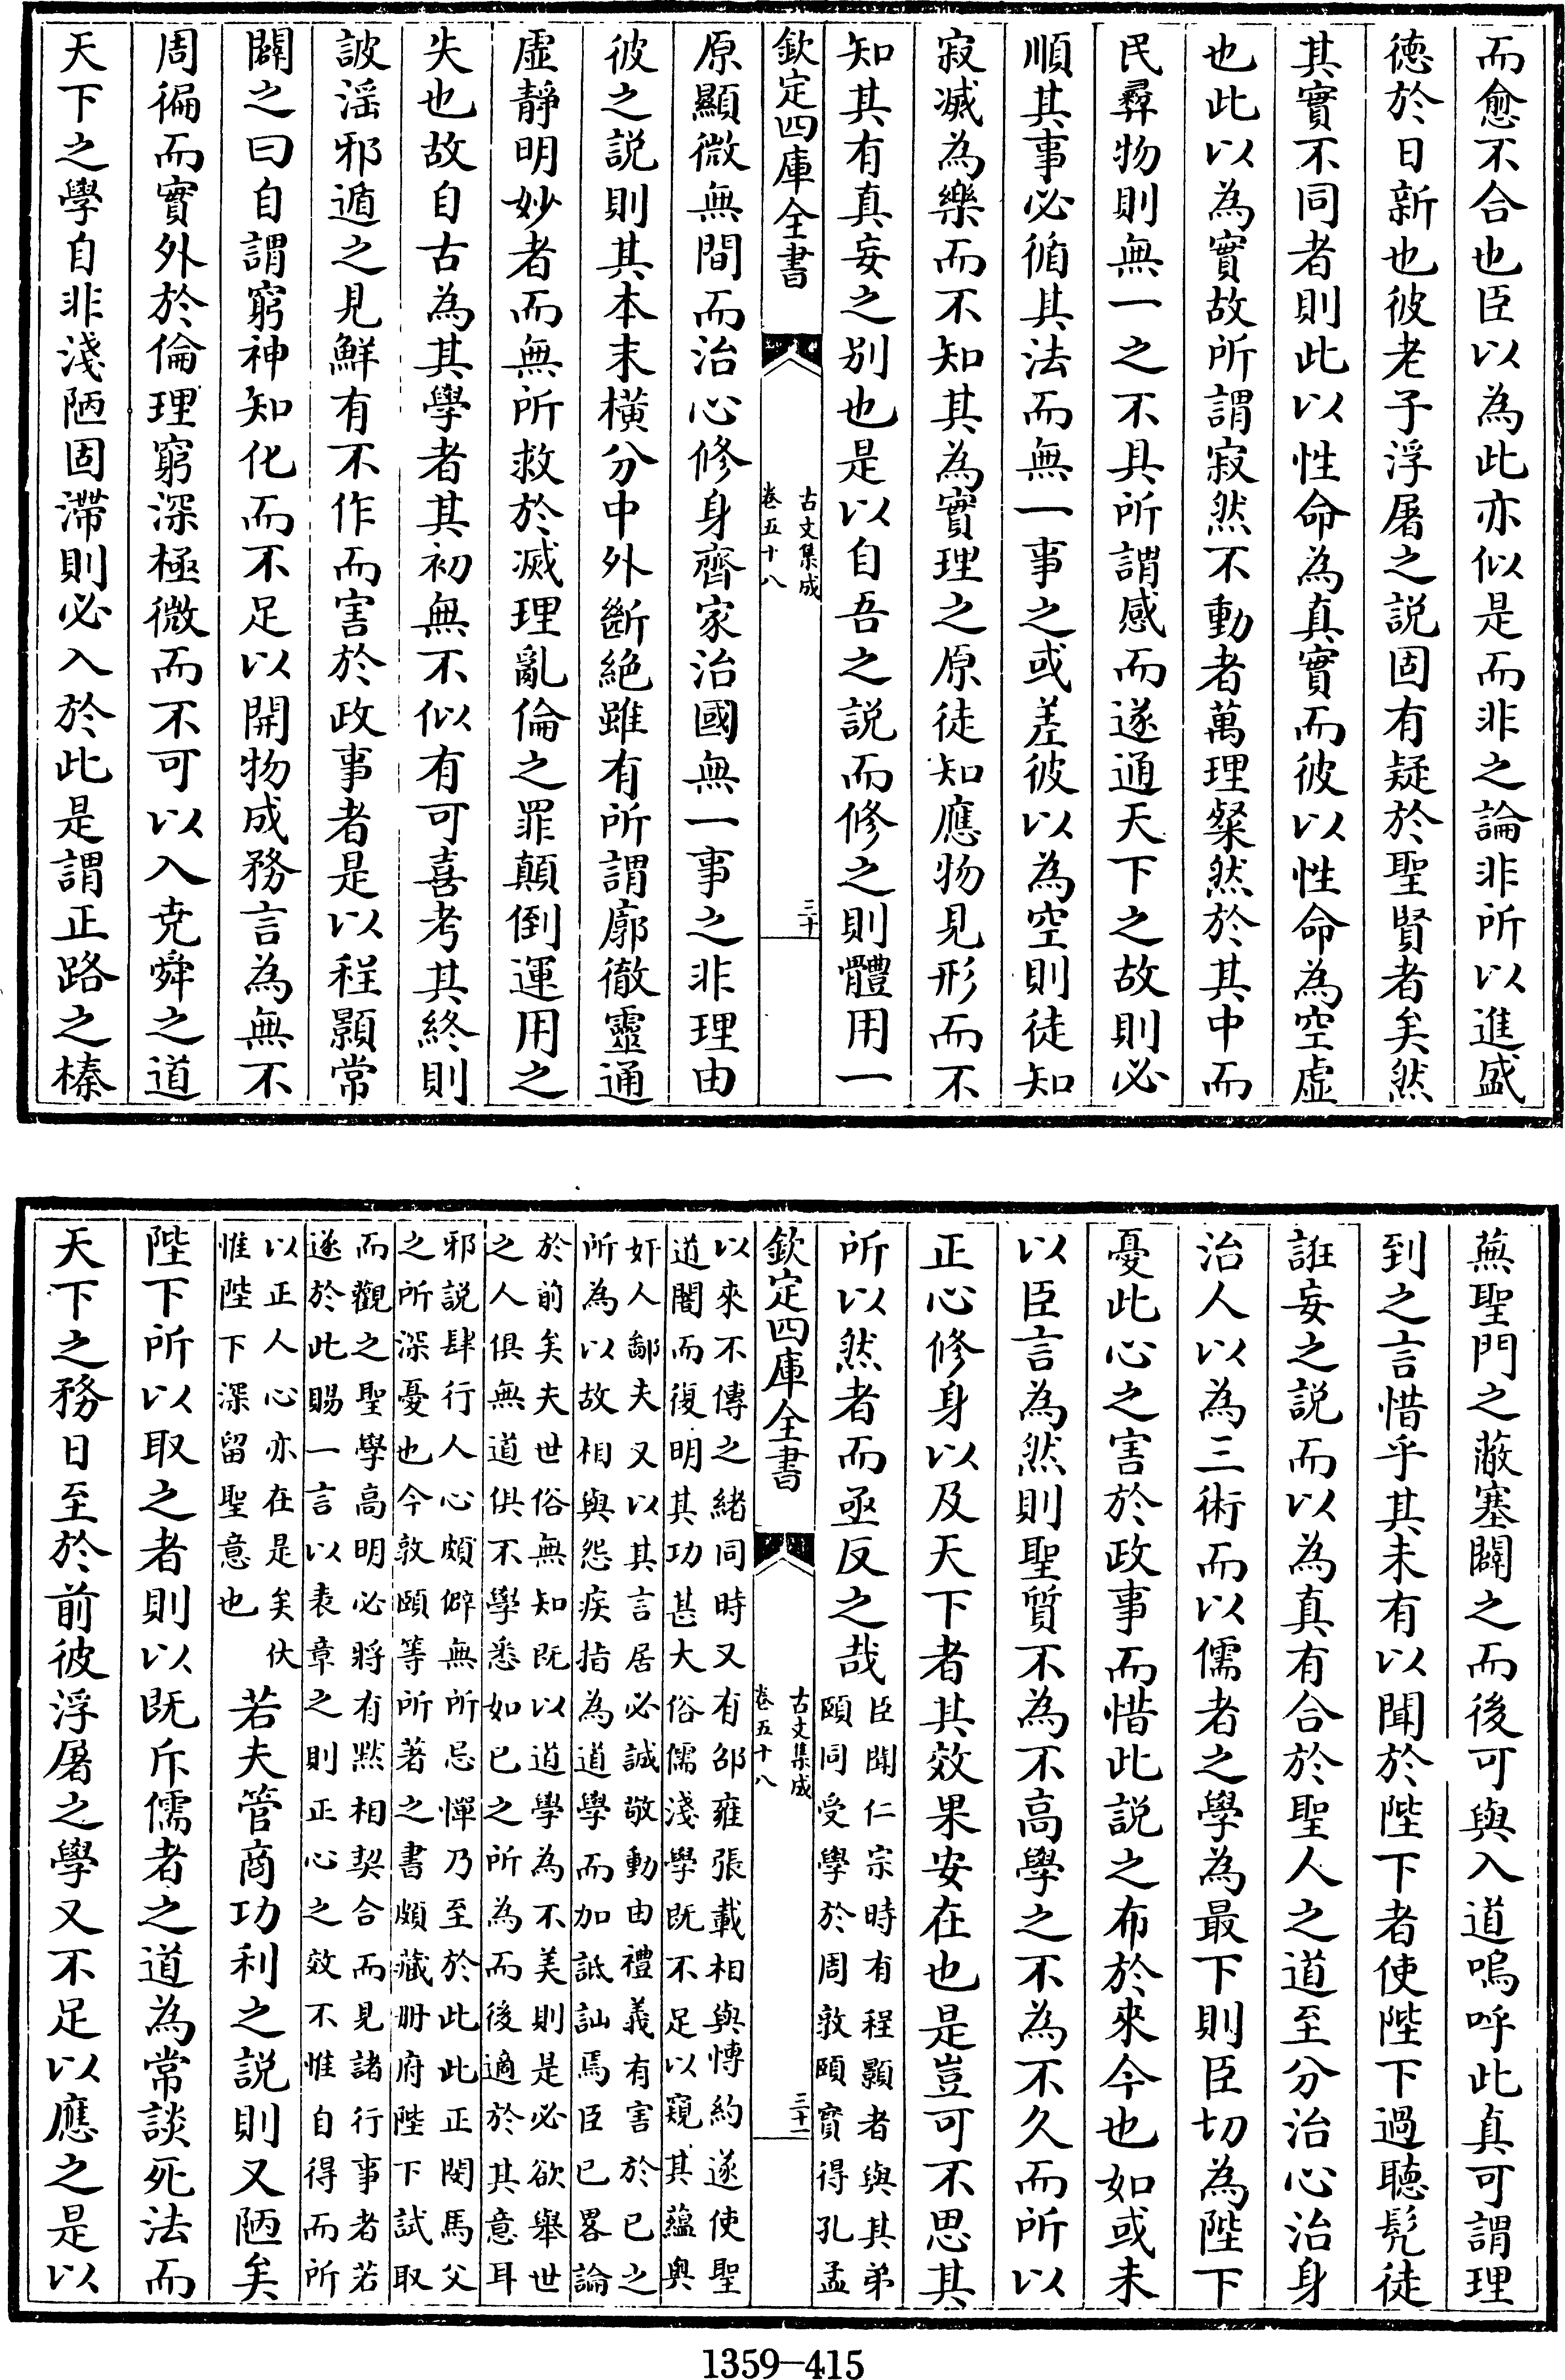 而愈不合也臣以為此亦似是而非之論非所以進盛
徳於日新也彼老子浮屠之説固有疑於聖賢者矣然
其實不同者則此以性命為真實而彼以性命為空虚
也此以為實故所謂寂然不動者萬理粲然於其中而
民彛物則無一之不具所謂感而遂通天下之故則必
順其事必循其法而無一事之或差彼以為空則徒知
寂滅為樂而不知其為實理之原徒知應物見形而不
知其有真妄之别也是以自吾之説而修之則體用一
欽定四庫全書
古文集成
卷五十八
三十
原顯微無間而治心修身齊家治國無一事之非理由
彼之説則其本末横分中外斷絶雖有所謂廓徹靈通
虚靜明妙者而無所救於滅理亂倫之罪顛倒運用之
失也故自古為其學者其初無不似有可喜考其終則
詖滛邪遁之見鮮有不作而害於政事者是以程顥常
闢之曰自謂窮神知化而不足以開物成務言為無不
周徧而實外於倫理窮深極微而不可以入堯舜之道
天下之學自非淺陋固滯則必入於此是謂正路之榛
蕪聖門之蔽塞闢之而後可與入道嗚呼此真可謂理
到之言惜乎其未有以聞於陛下者使陛下過聽髠徒
誑妄之説而以為真有合於聖人之道至分治心治身
治人以為三術而以儒者之學為最下則臣切為陛下
憂此心之害於政事而惜此説之布於來今也如或未
以臣言為然則聖質不為不高學之不為不久而所以
正心修身以及天下者其效果安在也是豈可不思其
所以然者而亟反之哉
臣聞仁宗時有程顥者與其弟
頤同受學於周敦頤實得孔孟
欽定四庫全書
古文集成
卷五十八
三十一
以來不傳之緒同時又有邵雍張載相與慱約遂使聖
道闇而復明其功甚大俗儒淺學既不足以窺其藴奥
奸人鄙夫又以其言居必誠敬動由禮義有害於已之
所為以故相與怨疾指為道學而加詆訕焉臣已畧論
於前矣夫世俗無知既以道學為不美則是必欲舉世
之人俱無道俱不學悉如已之所為而後適於其意耳
邪説肆行人心頗僻無所忌憚乃至於此此正閔馬父
之所深憂也今敦頤等所著之書頗藏冊府陛下試取
而觀之聖學高明必將有黙相契合而見諸行事者若
遂於此賜一言以表章之則正心之效不惟自得而所
以正人心亦在是矣伏
惟陛下深留聖意也
若夫管商功利之説則又陋矣
陛下所以取之者則以既斥儒者之道為常談死法而
天下之務日至於前彼浮屠之學又不足以應之是以
1359—415